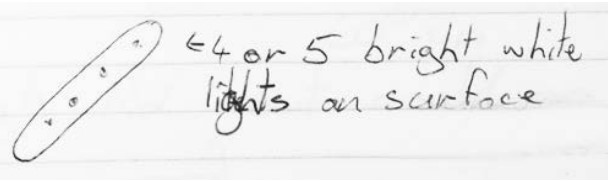 ←4 or 5 bright white
lights on surface